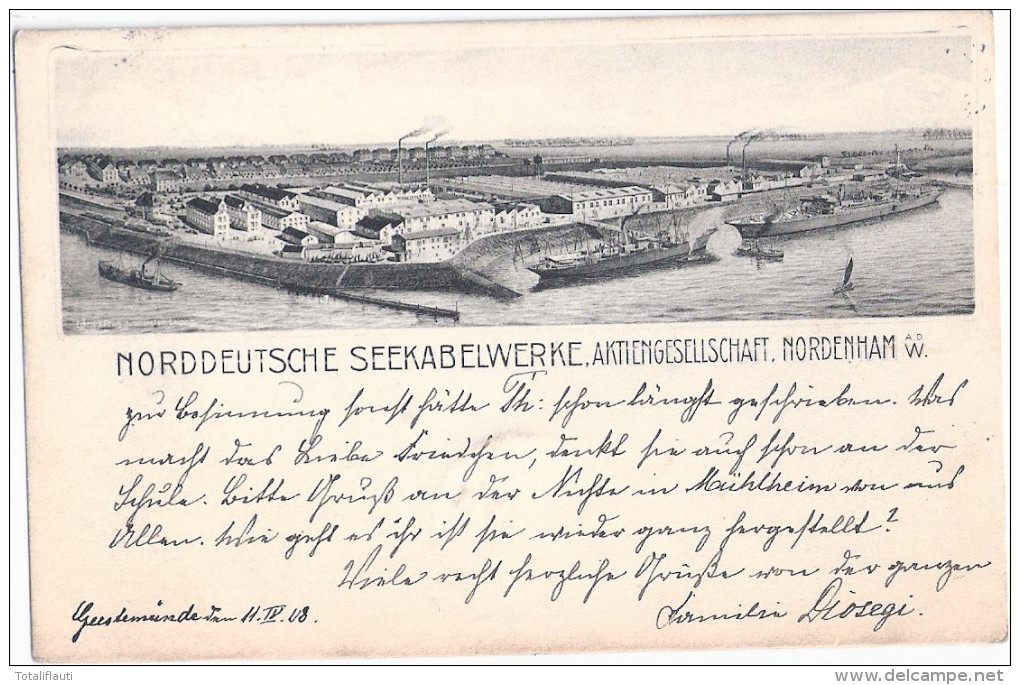 NORDDEUTSCHE SEEKABELWERKE, AKTIENGESELLSCHAFT, NORDENHAM A.D. W.
zur Besinnung sonst hätte Th: schon längst geschrieben. Was
macht das Liebe Friedchen, denkt sie auch schon an der
Schule. Bitte Gruß an der Nichte in Mühlheim von uns
Allen. Wie geht es ihr ist sie wieder ganz hergestellt?
Viele recht herzliche Grüße von der ganzen
Familie Diosegi.
Geestemünde den 11. IV. 08.
Totaliflauti
www.delcampe.net